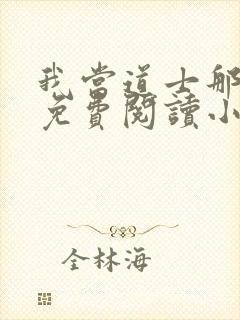 我當道士那
免費閱讀小
全林海